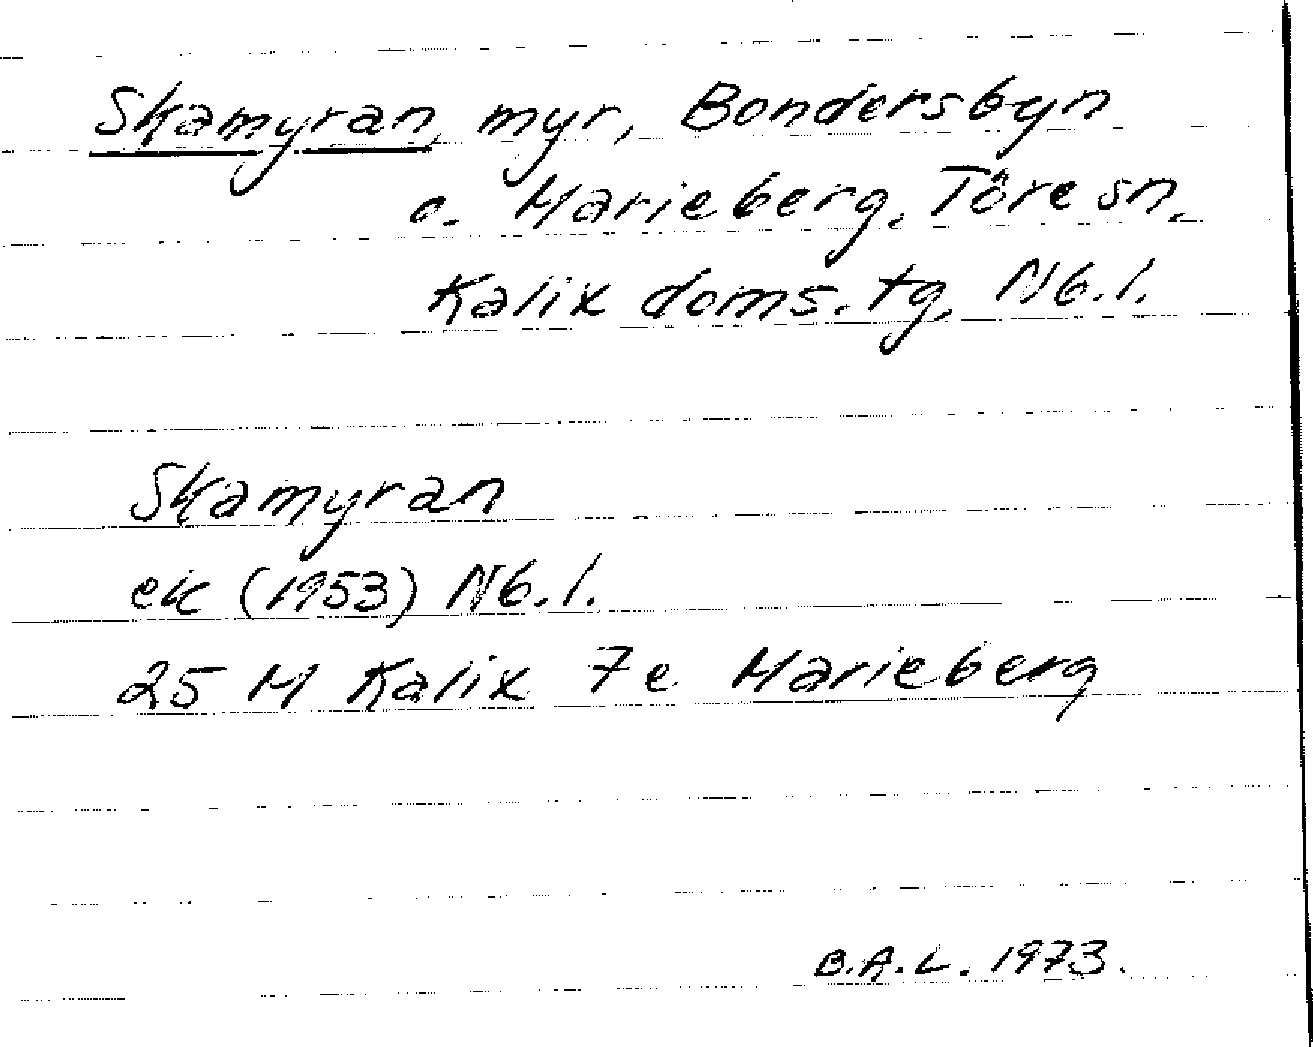 Skamyran, myr, Bondersbyn
o. Marieberg, Töre sn.
Kalix doms. tg, Nb.l.
Skamyran
ek (1953) Nb.l.
25 M Kalix 7e Marieberg
B.A.L. 1973.